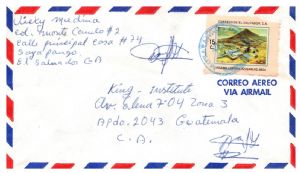 Vicky Medina
Col. Monte Carmelo #2
Calle principal Casa #24
Soyapango
El Salvador CA
CORREOS DE EL SALVADOR, C.A.
CORREO AEREO
VIA AIRMAIL
King-Institute
Ave. Elena 7-04 Zona 3
Apdo. 2043 Guatemala
C.A.